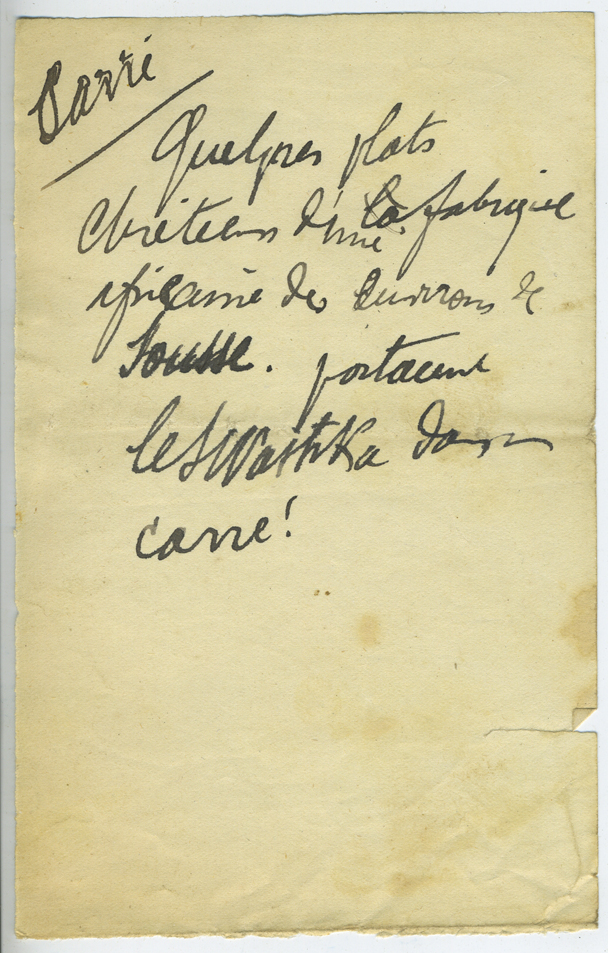 Carré
Quelques plats
Chrétiens d'une fabrique
africaine des environs de
Sousse. portaient
le Swastika dans un
carré!